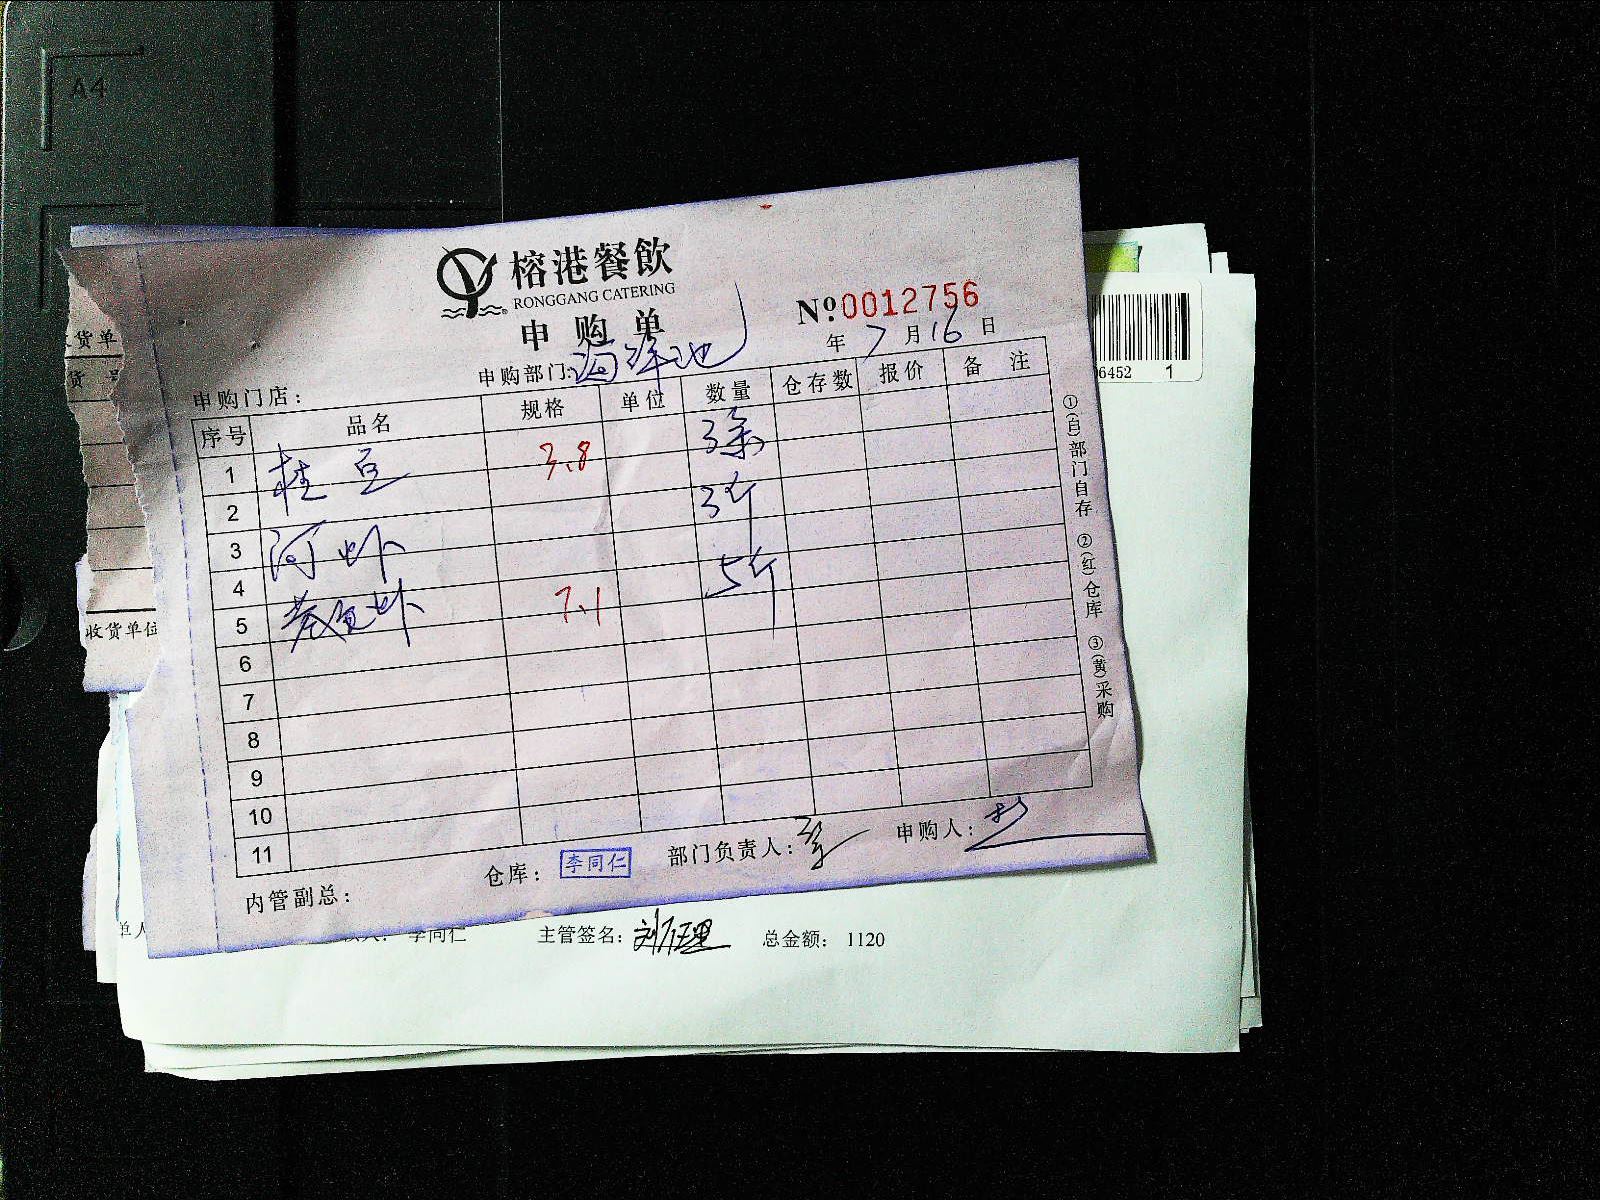 A4
榕港餐飲
RONGGANG CATERING
申购单
№0012756
年 7 月 16 日
申购门店：
申购部门：海洋池
序号 品名 规格 单位 数量 仓存数 报价 备注
1 桂 3.8 3条
2
3 河虾 3斤
4
5 7.1 5斤
6
7
8
9
10
11
内管副总：
仓库：李同仁
部门负责人：
申购人：
①(白)部门自存 ②(红)仓库 ③(黄)采购
收货单
货 号
收货单位
6452 1
单人
李同仁
主管签名：
总金额： 1120